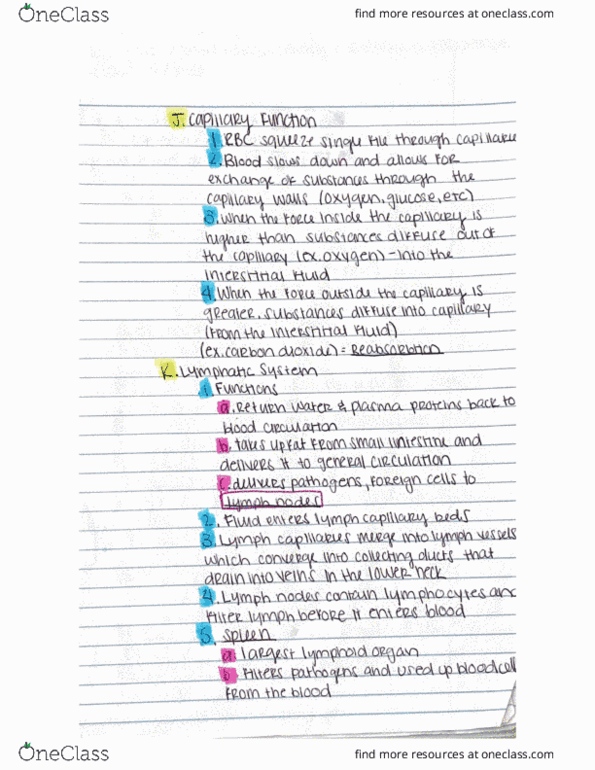 OneClass
find more resources at oneclass.com
J. Capillary Function
1. RBC squeeze single file through capillarie
2. Blood slows down and allows for
exchange of substances through the
capillary walls (oxygen, glucose, etc)
3. When the force inside the capillary is
higher than substances diffuse out of
the capillary (ex. oxygen) - into the
interstitial fluid
4. When the force outside the capillary is
greater, substances diffuse into capillary
(from the interstitial fluid)
(ex. carbon dioxide) = Reabsorption
K. Lymphatic System
1. Functions
a. return water & plasma proteins back to
blood circulation
b. takes up fat from small intestine and
delivers it to general circulation
c. delivers pathogens, foreign cells to
lymph nodes
2. Fluid enters lymph capillary beds
3. Lymph capillaries merge into lymph vessels
which converge into collecting ducts that
drain into veins in the lower neck
4. Lymph nodes contain lymphocytes and
filter lymph before it enters blood
5. Spleen
a. largest lymphoid organ
b. filters pathogens and used up blood cell
from the blood
OneClass
find more resources at oneclass.com